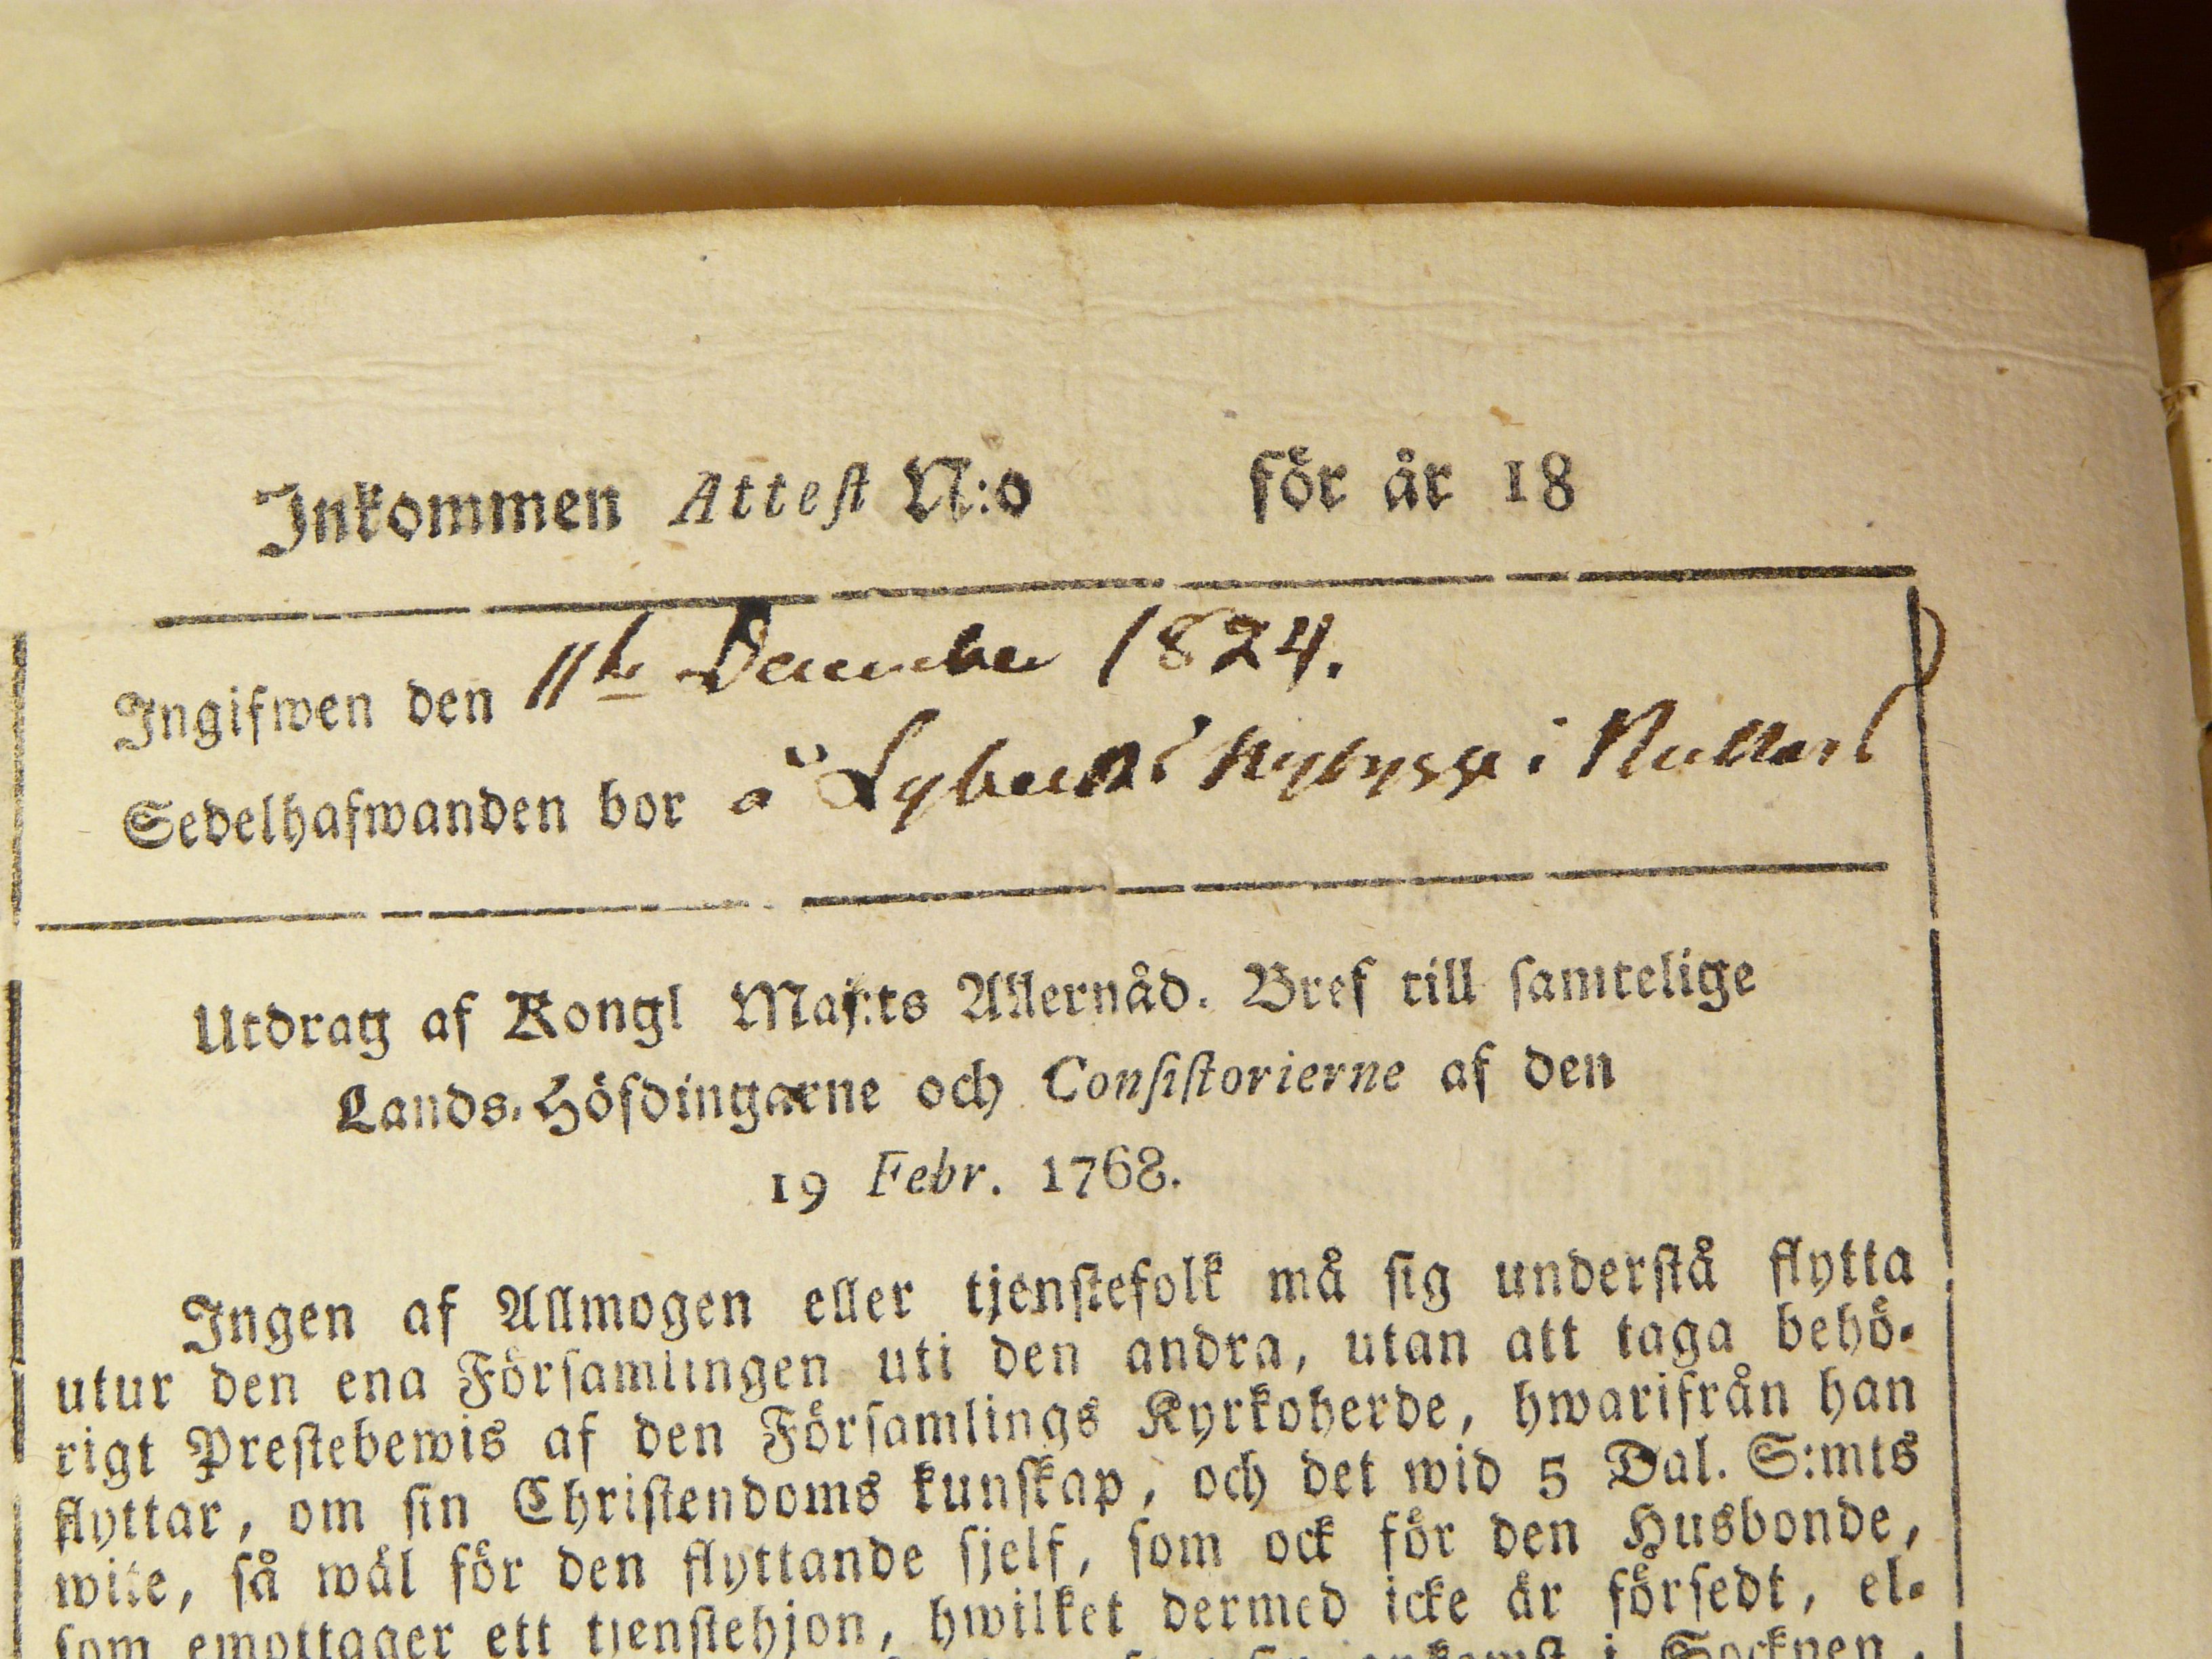 Inkommen Attest N:o för år 18
Ingifwen den 11te December 1824.
Sedelhafwanden bor å Nybygge i
Utdrag af Kongl Maj:ts Allernåd. Bref till samtelige
Lands-Höfdingarne och Consistorierne af den
19 Febr. 1768.
Ingen af Allmogen eller tjenstefolk må sig understå flytta
utur den ena Församlingen uti den andra, utan att taga behö-
rigt Prestebewis af den Församlings Kyrkoherde, hwarifrån han
flyttar, om sin Christendoms kunskap, och det wid 5 Dal. S:mts
wite, så wäl för den flyttande sjelf, som ock för den Husbonde,
som emottager ett tjenstehjon, hwilket dermed icke är försedt, el-
ankomst i Socknen,